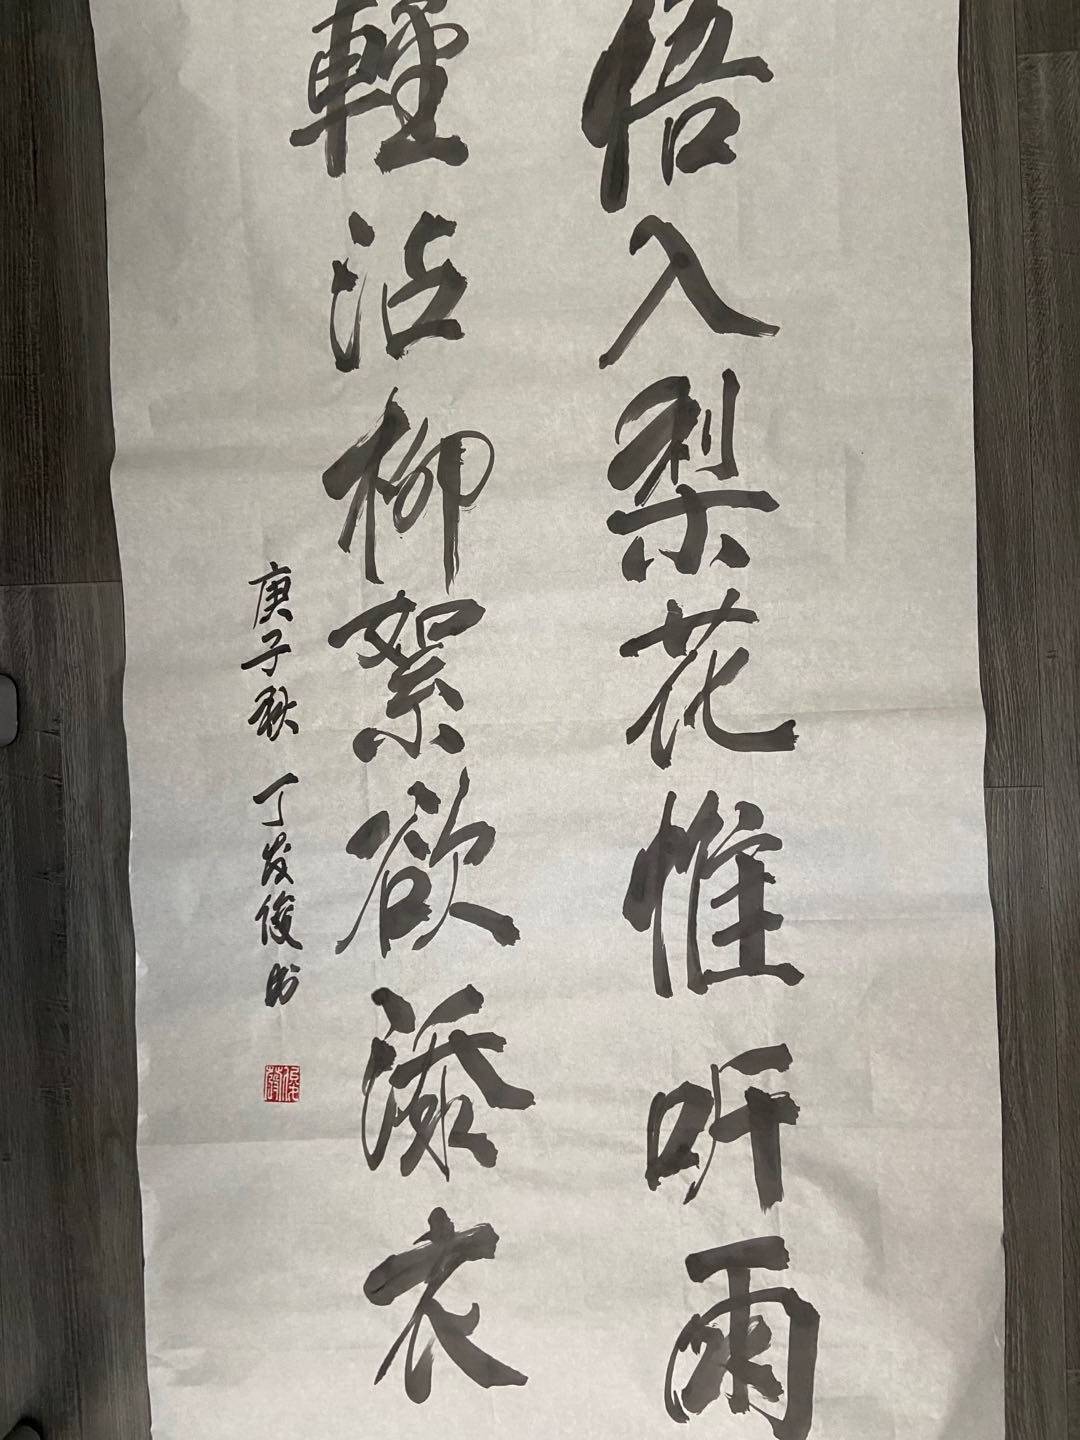 悟入梨花惟听雨
輕沾柳絮欲添衣
庚子秋 丁发俊书